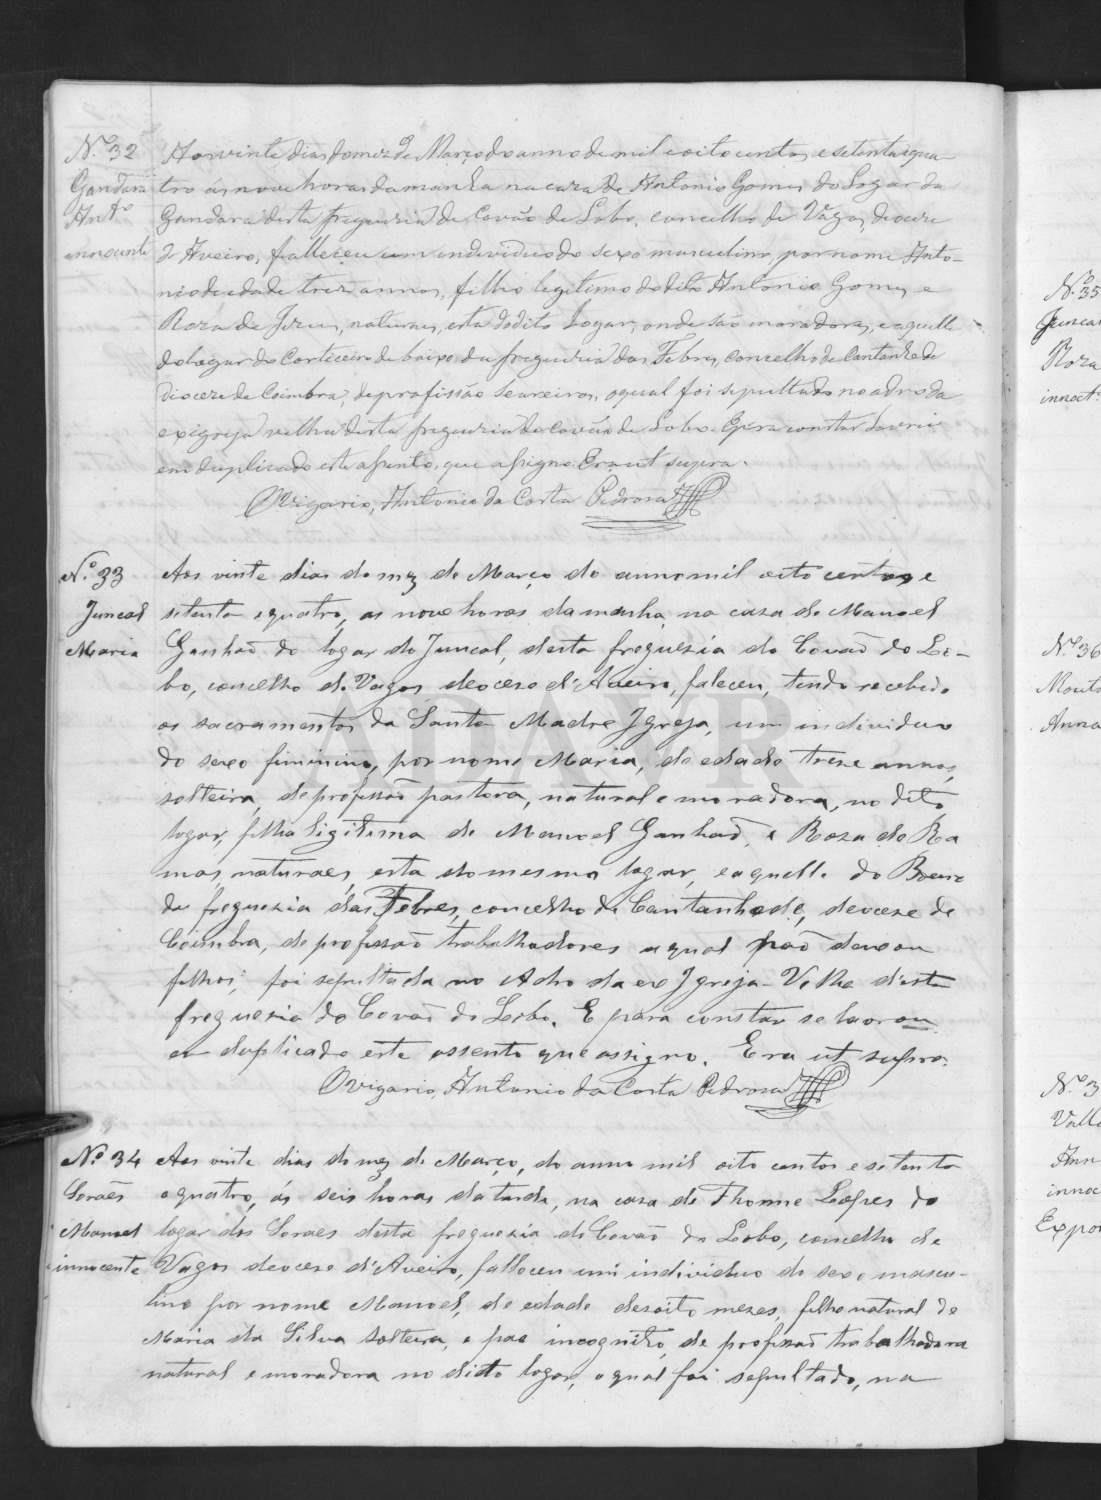 N.º 32
Gandara
Ant.º
innocente
Aos vinte dias do mez de Março do anno de mil e oito centos e setenta e qua-
tro ás nove horas da manhã na caza de Antonio Gomes do Logar da
Gandara desta freguezia de Covão de Lobo, concelho de Vagos, diocese
d'Aveiro, falleceu um individuo do sexo masculino, por nome Anto-
nio de edade trez annos, filho legitimo do dito Antonio Gomes e
Roza de Jezus, naturaes, esta do dito Logar, onde são moradores, e aquelle
do logar do Corticeiro de baixo, da freguezia das Febres, concelho de Cantanhede
diocese de Coimbra, de profissão Seareiros, o qual foi sepultado no adro da
ex igreja velha desta freguezia de Covão de Lobo. E para constar lavrei
em duplicado este assento, que assigno. Era ut supra.
O Vigario, Antonio da Costa Pedrosa
N.º 33
Juncal
Maria
Aos vinte dias do mez de Março do anno mil oito centos e
setenta e quatro, as nove horas da manha, na caza de Manoel
Ganhaõ do logar do Juncal, desta freguezia do Covaõ do Lo-
bo, concelho de Vagos deoceze d'Aveiro, faleceu, tendo recebido
os sacramentos da Santa Madre Igreja, um individuo
do sexo fiminino, por nome Maria, de edade treze annos,
solteira, de profissaõ pastora, natural e moradora, no dito
logar, filha ligitima de Manoel Ganhaõ, e Roza de Ra
mos, naturaes, esta do mesmo logar, e aquelle do
da freguezia das Febres, concelho de Cantanhede, deoceze de
Coimbra, de profissaõ trabalhadores a qual naõ deixou
filhos; foi sepultada no Adro da ex Igreja-Velha desta
freguezia do Covaõ do Lobo. E para constar se lavrou
em duplicado este assento que assigno. Era ut supra.
O Vigario, Antonio da Costa Pedrosa
N.º 34
Soraes
Manoel
innocente
Aos vinte dias do mez de Março, do anno mil oito centos e setenta
e quatro, ás seis horas da tarde, na caza de Thome Lopes do
logar dos Soraes desta freguezia do Covaõ do Lobo, concelho de
Vagos deoceze d'Aveiro, falleceu um individuo do sexo mascu-
lino por nome Manoel, de edade dezoito mezes, filho natural de
Maria da Silva solteira, e pae incognito, de profissaõ trabalhadora
natural e moradora no dicto logar, o qual foi sepultado, na
N.º 35
Juncal
Roza
innoct.e
N.º 36
Anna
N.º 3
Ann
innoc
Expos
ADAVR